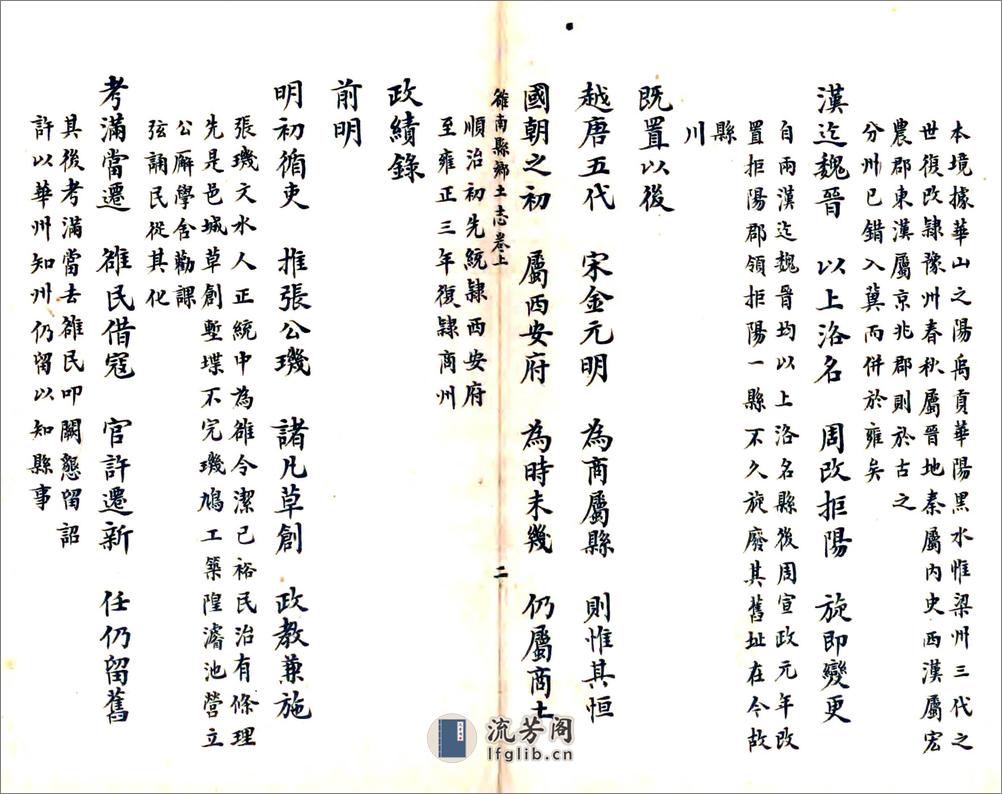 本境據華山之陽禹貢華陽黑水惟梁州三代之
世復改隸豫州春秋屬晉地秦屬內史西漢屬宏
農郡東漢屬京兆郡則於古之
分州已錯入冀而併於雍矣
漢迄魏晉　以上洛名　周改拒陽　旋即變更
自兩漢迄魏晉均以上洛名縣後周宣政元年改
置拒陽郡領拒陽一縣不久旋廢其舊址在今故
縣
川
既置以後
越唐五代　宋金元明　為商屬縣　則惟其恒
國朝之初　屬西安府　為時未幾　仍屬商土
雒南縣鄉土志卷上　二
順治初先統隸西安府
至雍正三年復隸商州
政績錄
前明
明初循吏　推張公璣　諸凡草創　政教兼施
張璣文水人正統中為雒令潔已裕民治有條理
先是邑城草創塹堞不完璣鳩工築隍濬池營立
公廨學舍勸課
弦誦民從其化
考滿當遷　雒民借寇　官許遷新　任仍留舊
其後考滿當去雒民叩闕懇留詔
許以華州知州仍留以知縣事
流芳阁
lfglib.cn